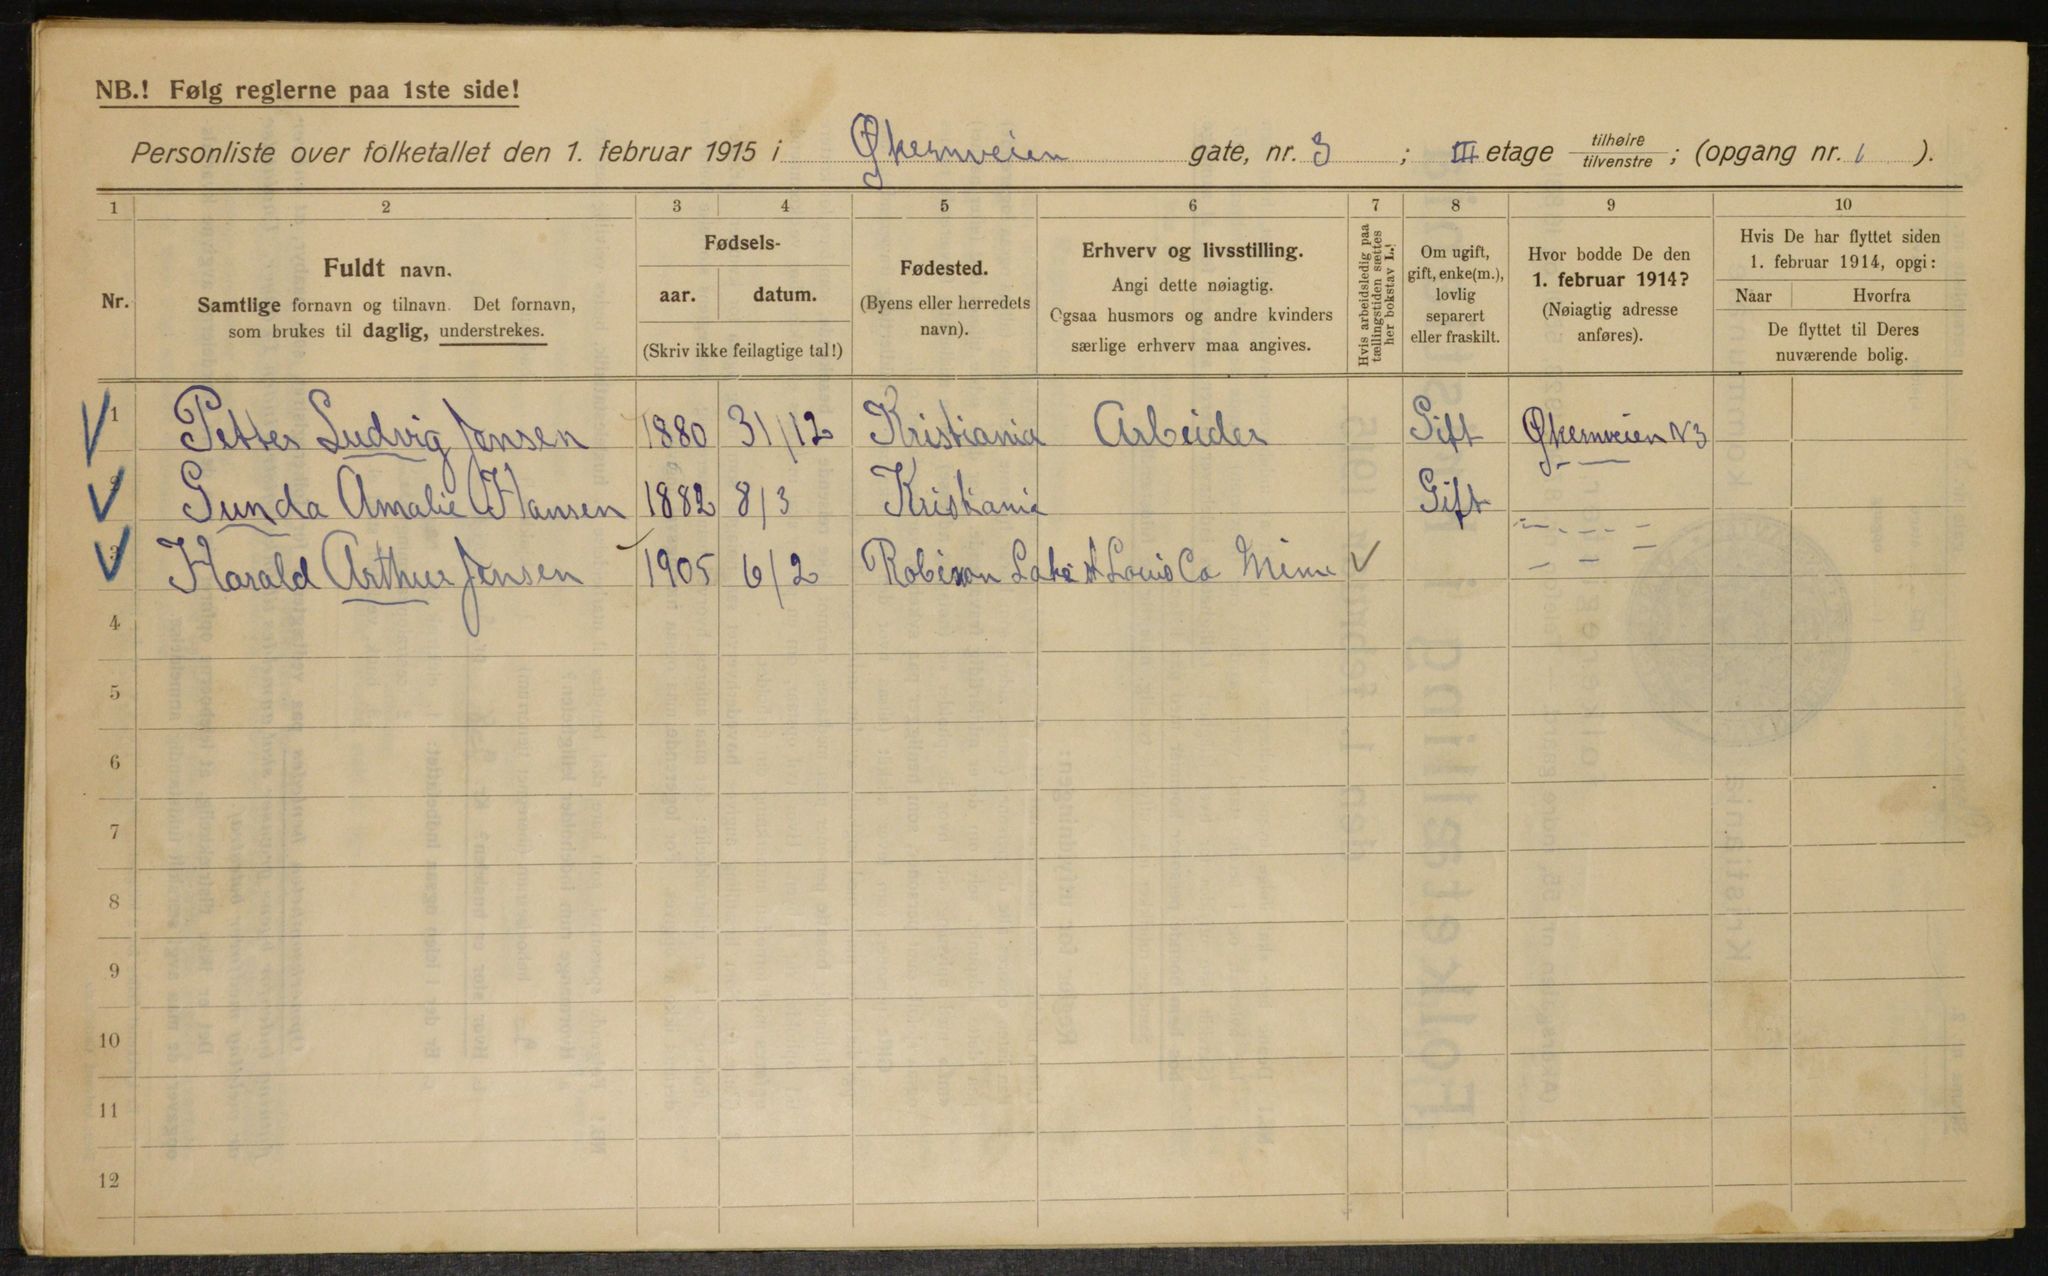 NB.! Følg reglerne paa 1ste side!
Personliste over folketallet den 1. februar 1915 i Økernveien gate, nr. 3 ; III etage tilhøire / tilvenstre ; (opgang nr. 1 ).
1 2 3 4 5 6 7 8 9 10
Nr.
Fuldt navn.
Samtlige fornavn og tilnavn. Det fornavn,
som brukes til daglig, understrekes.
Fødsels-
aar. datum.
(Skriv ikke feilagtige tal!)
Fødested.
(Byens eller herredets
navn).
Erhverv og livsstilling.
Angi dette nøiagtig.
Ogsaa husmors og andre kvinders
særlige erhverv maa angives.
Hvis arbeidsledig paa
tællingstiden sættes
her bokstav L.!
Om ugift,
gift, enke(m.),
lovlig
separert
eller fraskilt.
Hvor bodde De den
1. februar 1914?
(Nøiagtig adresse
anføres).
Hvis De har flyttet siden
1. februar 1914, opgi:
Naar Hvorfra
De flyttet til Deres
nuværende bolig.
1 Petter Ludvig Jensen 1880 31/12 Kristiania Arbeider Gift Økernveien N 3
2 Gunda Amalie Hansen 1882 8/3 Kristiania Gift
3 Harald Arthur Jensen 1905 6/2 Robinson Lake St Louis Co Minn
4
5
6
7
8
9
10
11
12